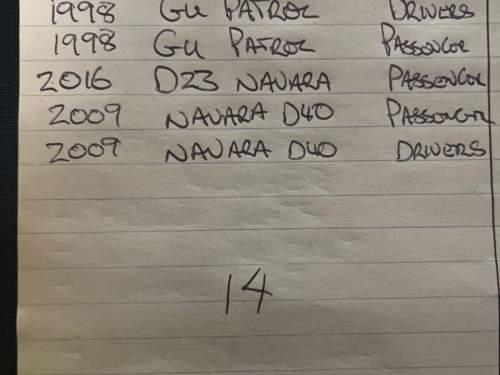 1998 GU PATROL DRIVERS
1998 GU PATROL PASSENGER
2016 D23 NAVARA PASSENGER
2009 NAVARA D40 PASSENGER
2009 NAVARA D40 DRIVERS
14